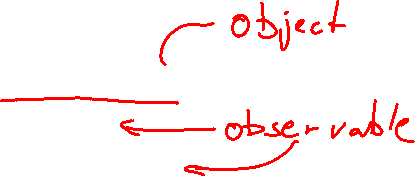 object
observable